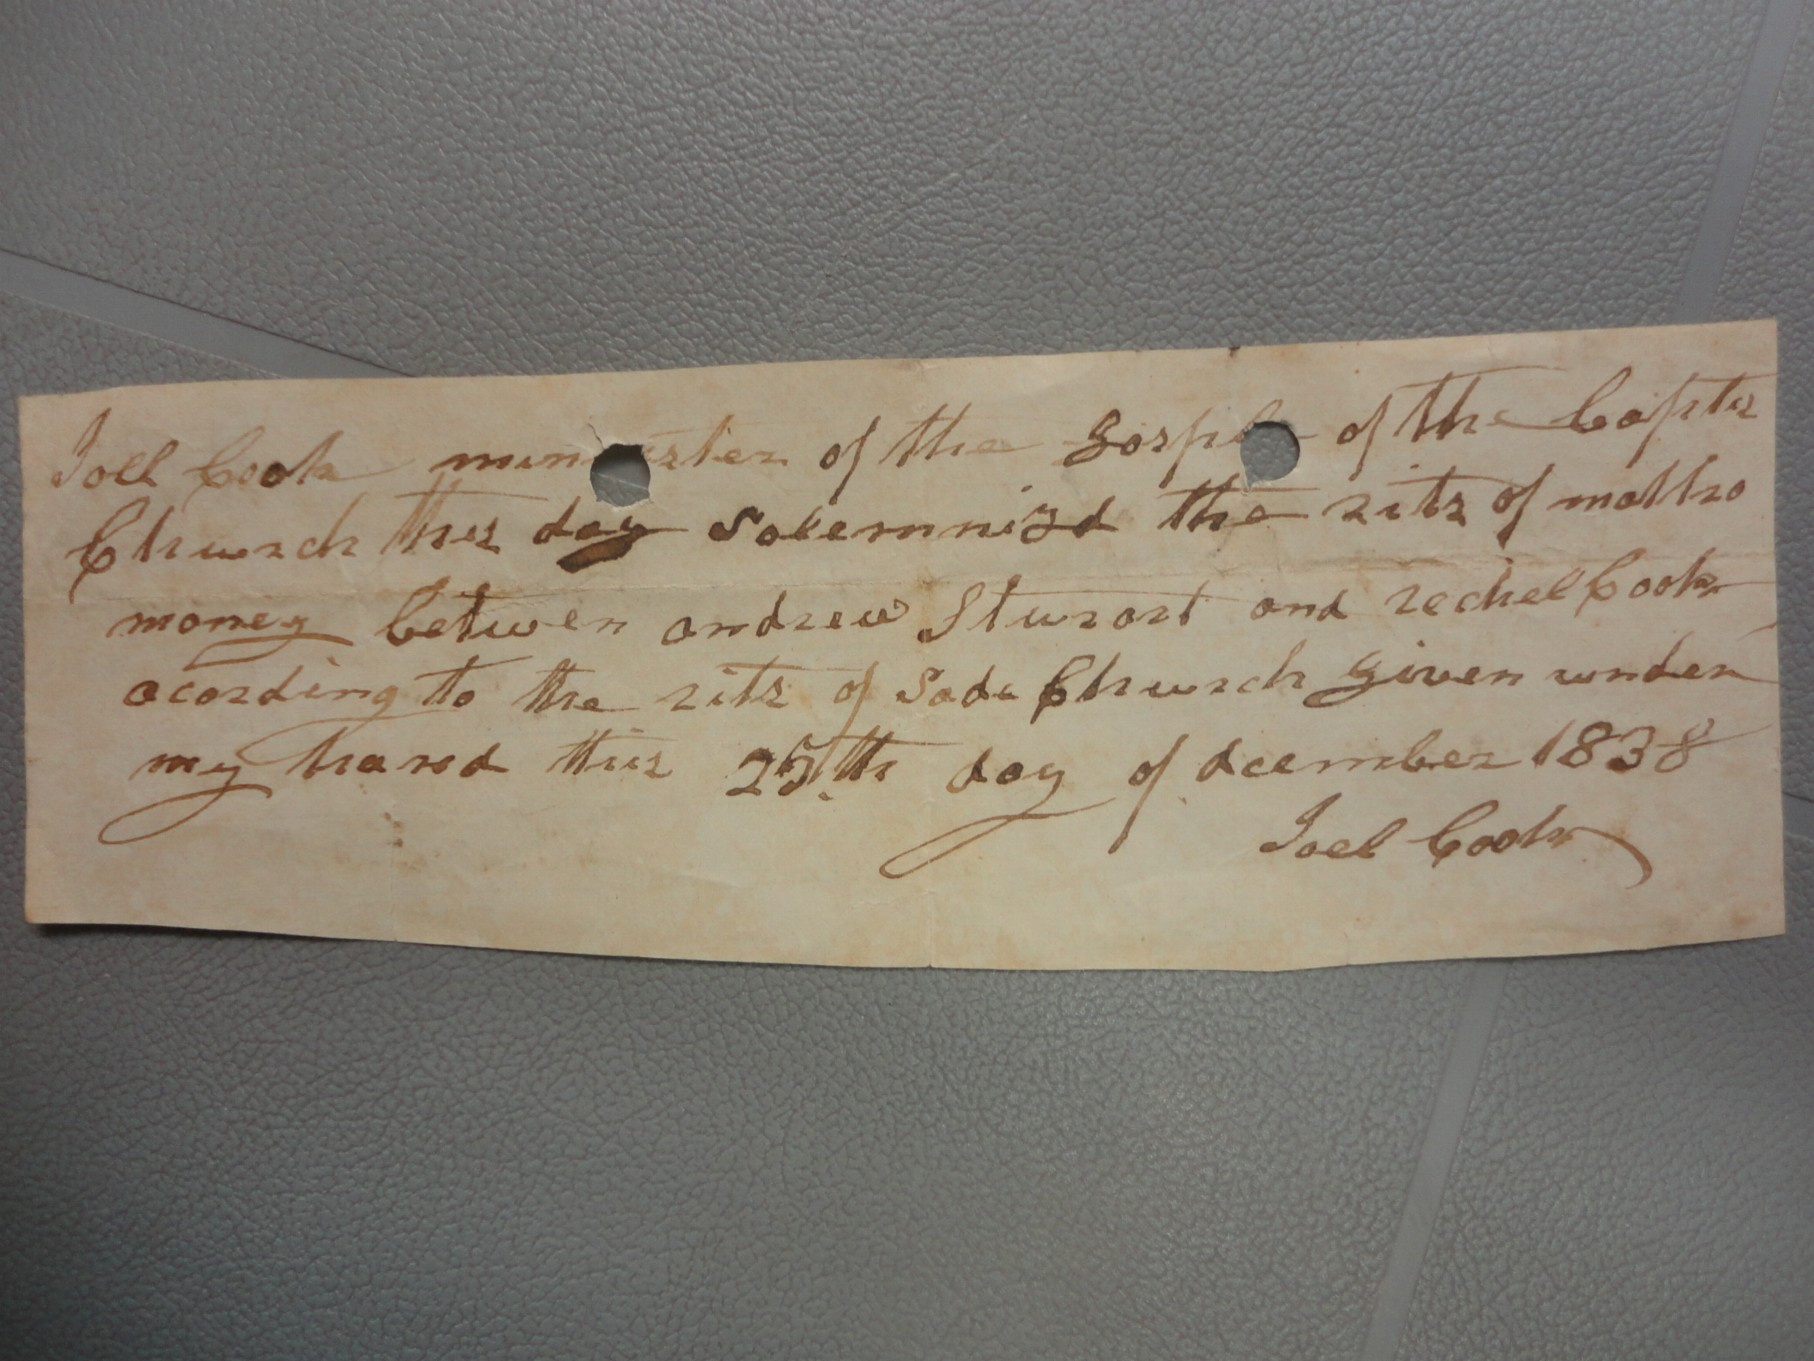 Joel Cook minister of the gospel of the baptis
Church this day Solemnizd the rits of mattro
money betwen andrew Sturart and rechel Cook
acording to the rits of Sade Church given under
my hand this 25th day of dcember 1838
Joel Cook